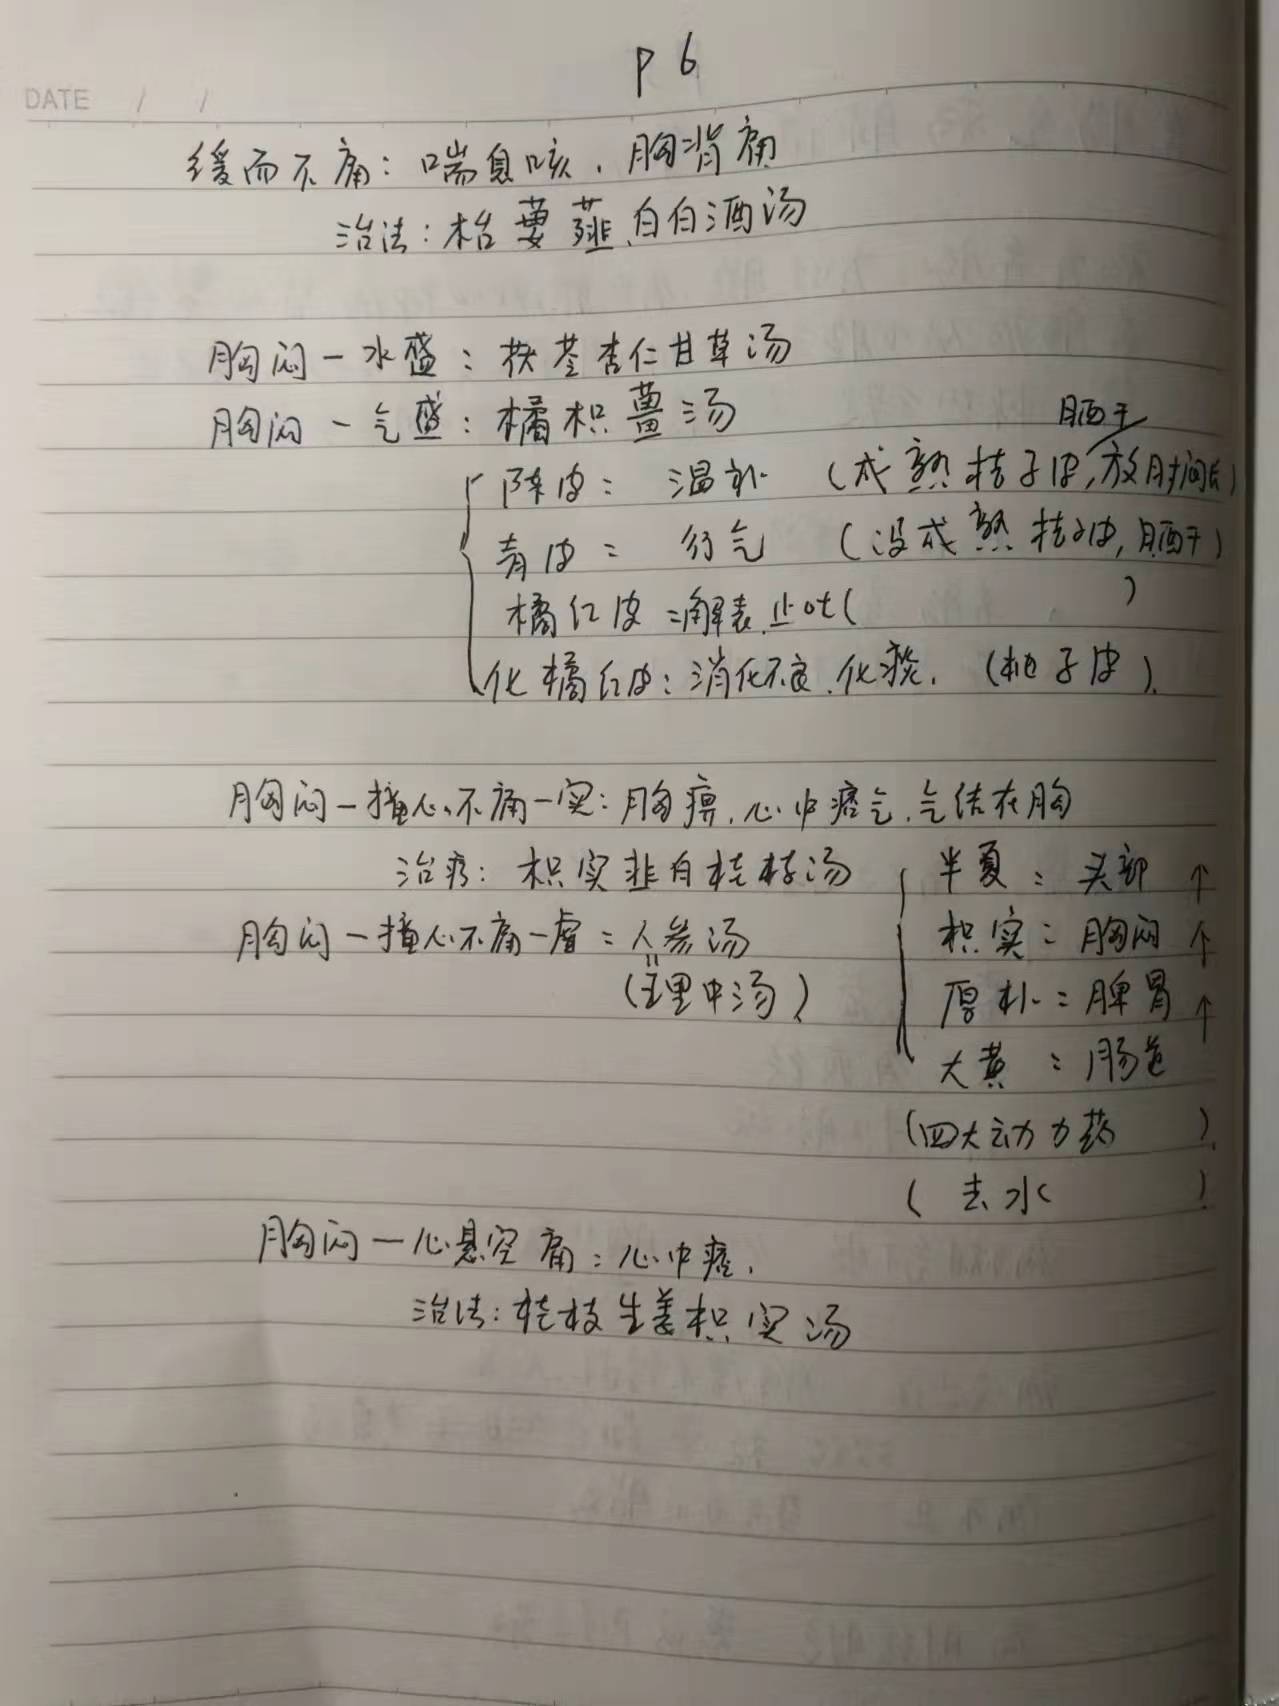 P6
DATE / /
缓而不痛：喘息咳、胸背痛
治法：枯蒌薤白白酒汤
胸闷－水盛：茯苓杏仁甘草汤
胸闷－气盛：橘枳薑汤
晒干
陈皮：温补（成熟桔子皮，放时间长）
青皮：行气（没成熟桔子皮，晒干）
橘红皮：解表、止吐（ ）
化橘红皮：消化不良、化痰。（柚子皮）
胸闷－撞心、不痛－实：胸痹、心中痞气、气结在胸
治疗：枳实韭白桂枝汤
半夏：头部↑
胸闷－撞心不痛－虚：人参汤
枳实：胸闷↑
（理中汤）
厚朴：脾胃↑
大黄：肠道
（四大动力药 ）
（去水 ）
胸闷－心悬空痛：心中痞、
治法：桂枝生姜枳实汤